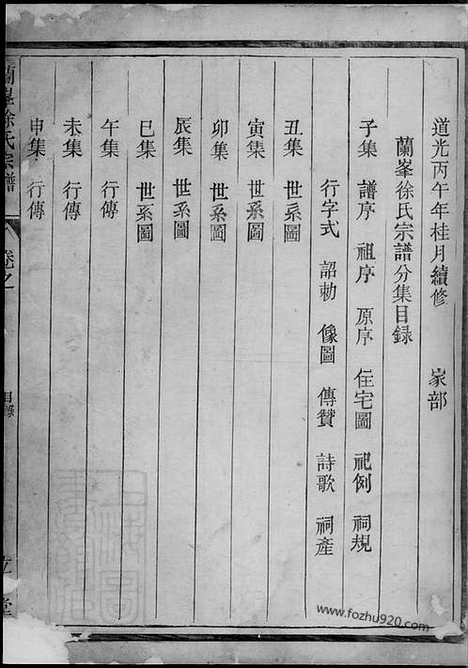 道光丙午年桂月續修 家部
蘭峯徐氏宗譜分集目録
子集 譜序 祖序 原序 住宅圖 祀例 祠規
行字式 詔勅 像圖 傳贊 詩歌 祠產
丑集 世系圖
寅集 世系圖
卯集 世系圖
辰集 世系圖
巳集 世系圖
午集 行傳
未集 行傳
申集 行傳
徐氏宗譜 卷之 目錄 堂
www.fozhu920.com